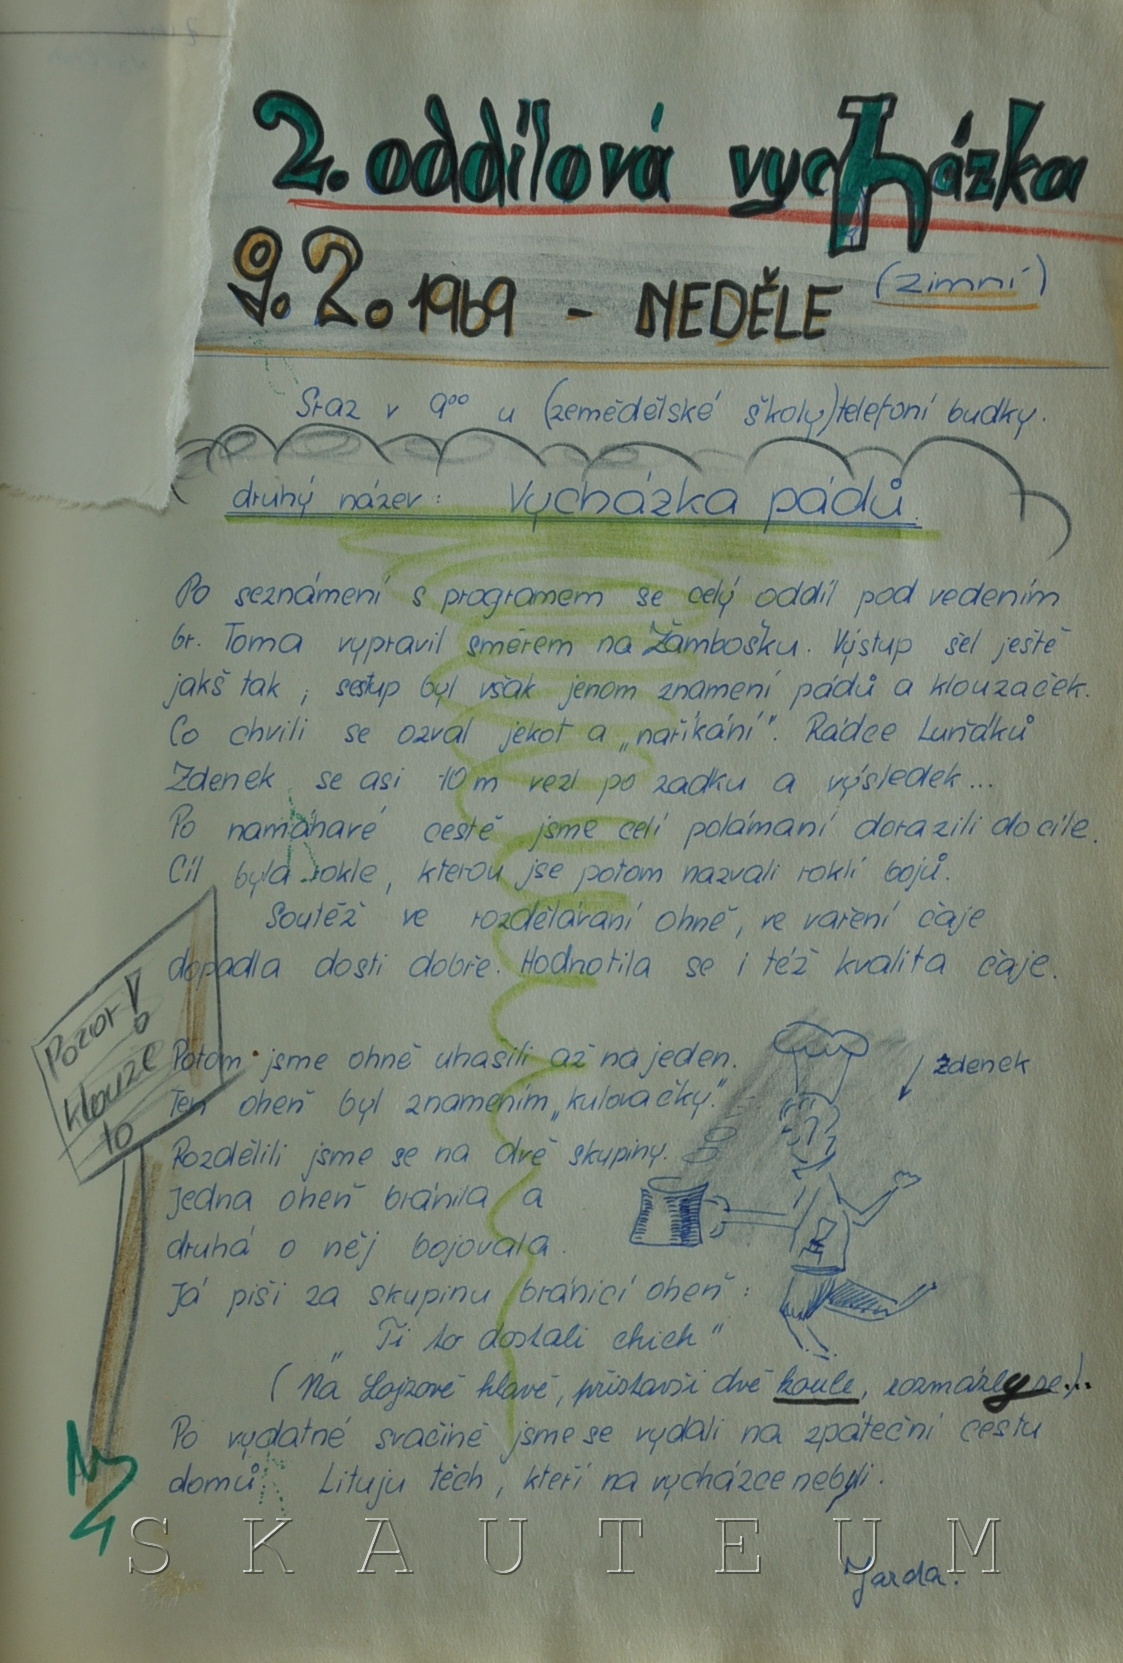 2. oddílová vycházka
9. 2. 1969 - NEDĚLE (zimní)
Sraz v 9⁰⁰ u (zemědělské školy) telefoní budky.
druhý název: Vycházka pádů.
Po seznámení s programem se celý oddíl pod vedením
br. Toma vypravil směrem na Žambošku. Výstup šel ještě
jakš tak, sestup byl však jenom znamení pádů a klouzaček.
Co chvíli se ozval jekot a „naříkání". Rádce Luňáků
Zdenek se asi 10 m vezl po zadku a výsledek...
Po namáhavé cestě jsme celí polámaní dorazili do cíle.
Cíl byla rokle, kterou jse potom nazvali roklí bojů.
Soutěž ve rozdělávaní ohně, ve vaření čaje
dopadla dosti dobře. Hodnotila se i též kvalita čaje.
Pozor!
klouže
to
Potom jsme ohně uhasili až na jeden.
Ten oheň byl znamením „kulovačky".
Rozdělili jsme se na dvě skupiny.
Jedna oheň bránila a
druhá o něj bojovala.
Já píši za skupinu bránicí oheň:
„Ti to dostali chich"
(Na Lojzově hlavě, přistavši dvě koule, rozmázly se...)
Po vydatné svačině jsme se vydali na zpáteční cestu
domů. Lituju těch, kteří na vycházce nebyli.
Zdenek
Jarda.
SKAUTEUM